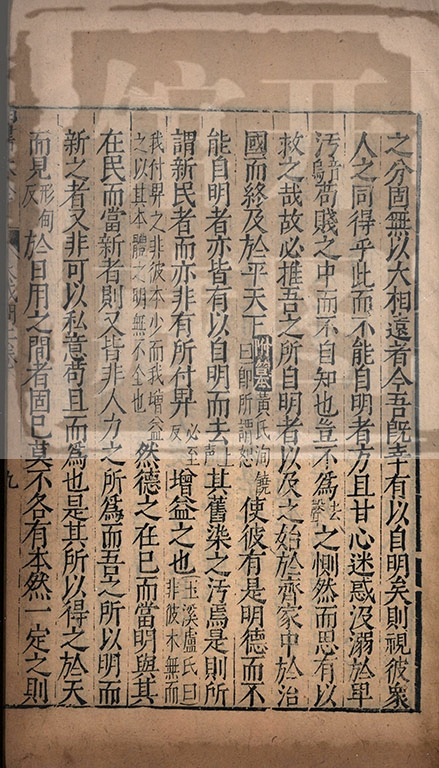 之分固無以大相遠者今吾旣幸有以自明矣則視彼衆
人之同得乎此而不能自明者方且甘心迷惑沒溺於卑
汚音烏苟賤之中而不自知也豈不爲去聲之惻然而思有以
救之哉故必推吾之所自明者以及之始於齊家中於治
國而終及於平天下附纂黃氏洵饒曰卽所謂恕使彼有是明德而不
能自明者亦皆有以自明而去上聲其舊染之汚焉是則所
謂新民者而亦非有所付畀必至反增益之也玉溪盧氏曰非彼本無而
我付畀之非彼本少而我增益之以其本體之明無不全也然德之在已而當明與其
在民而當新者則又皆非人力之所爲而吾之所以明而
新之者又非可以私意苟且而爲也是其所以得之於天
而見形甸反於日用之間者固已莫不各有本然一定之則
九